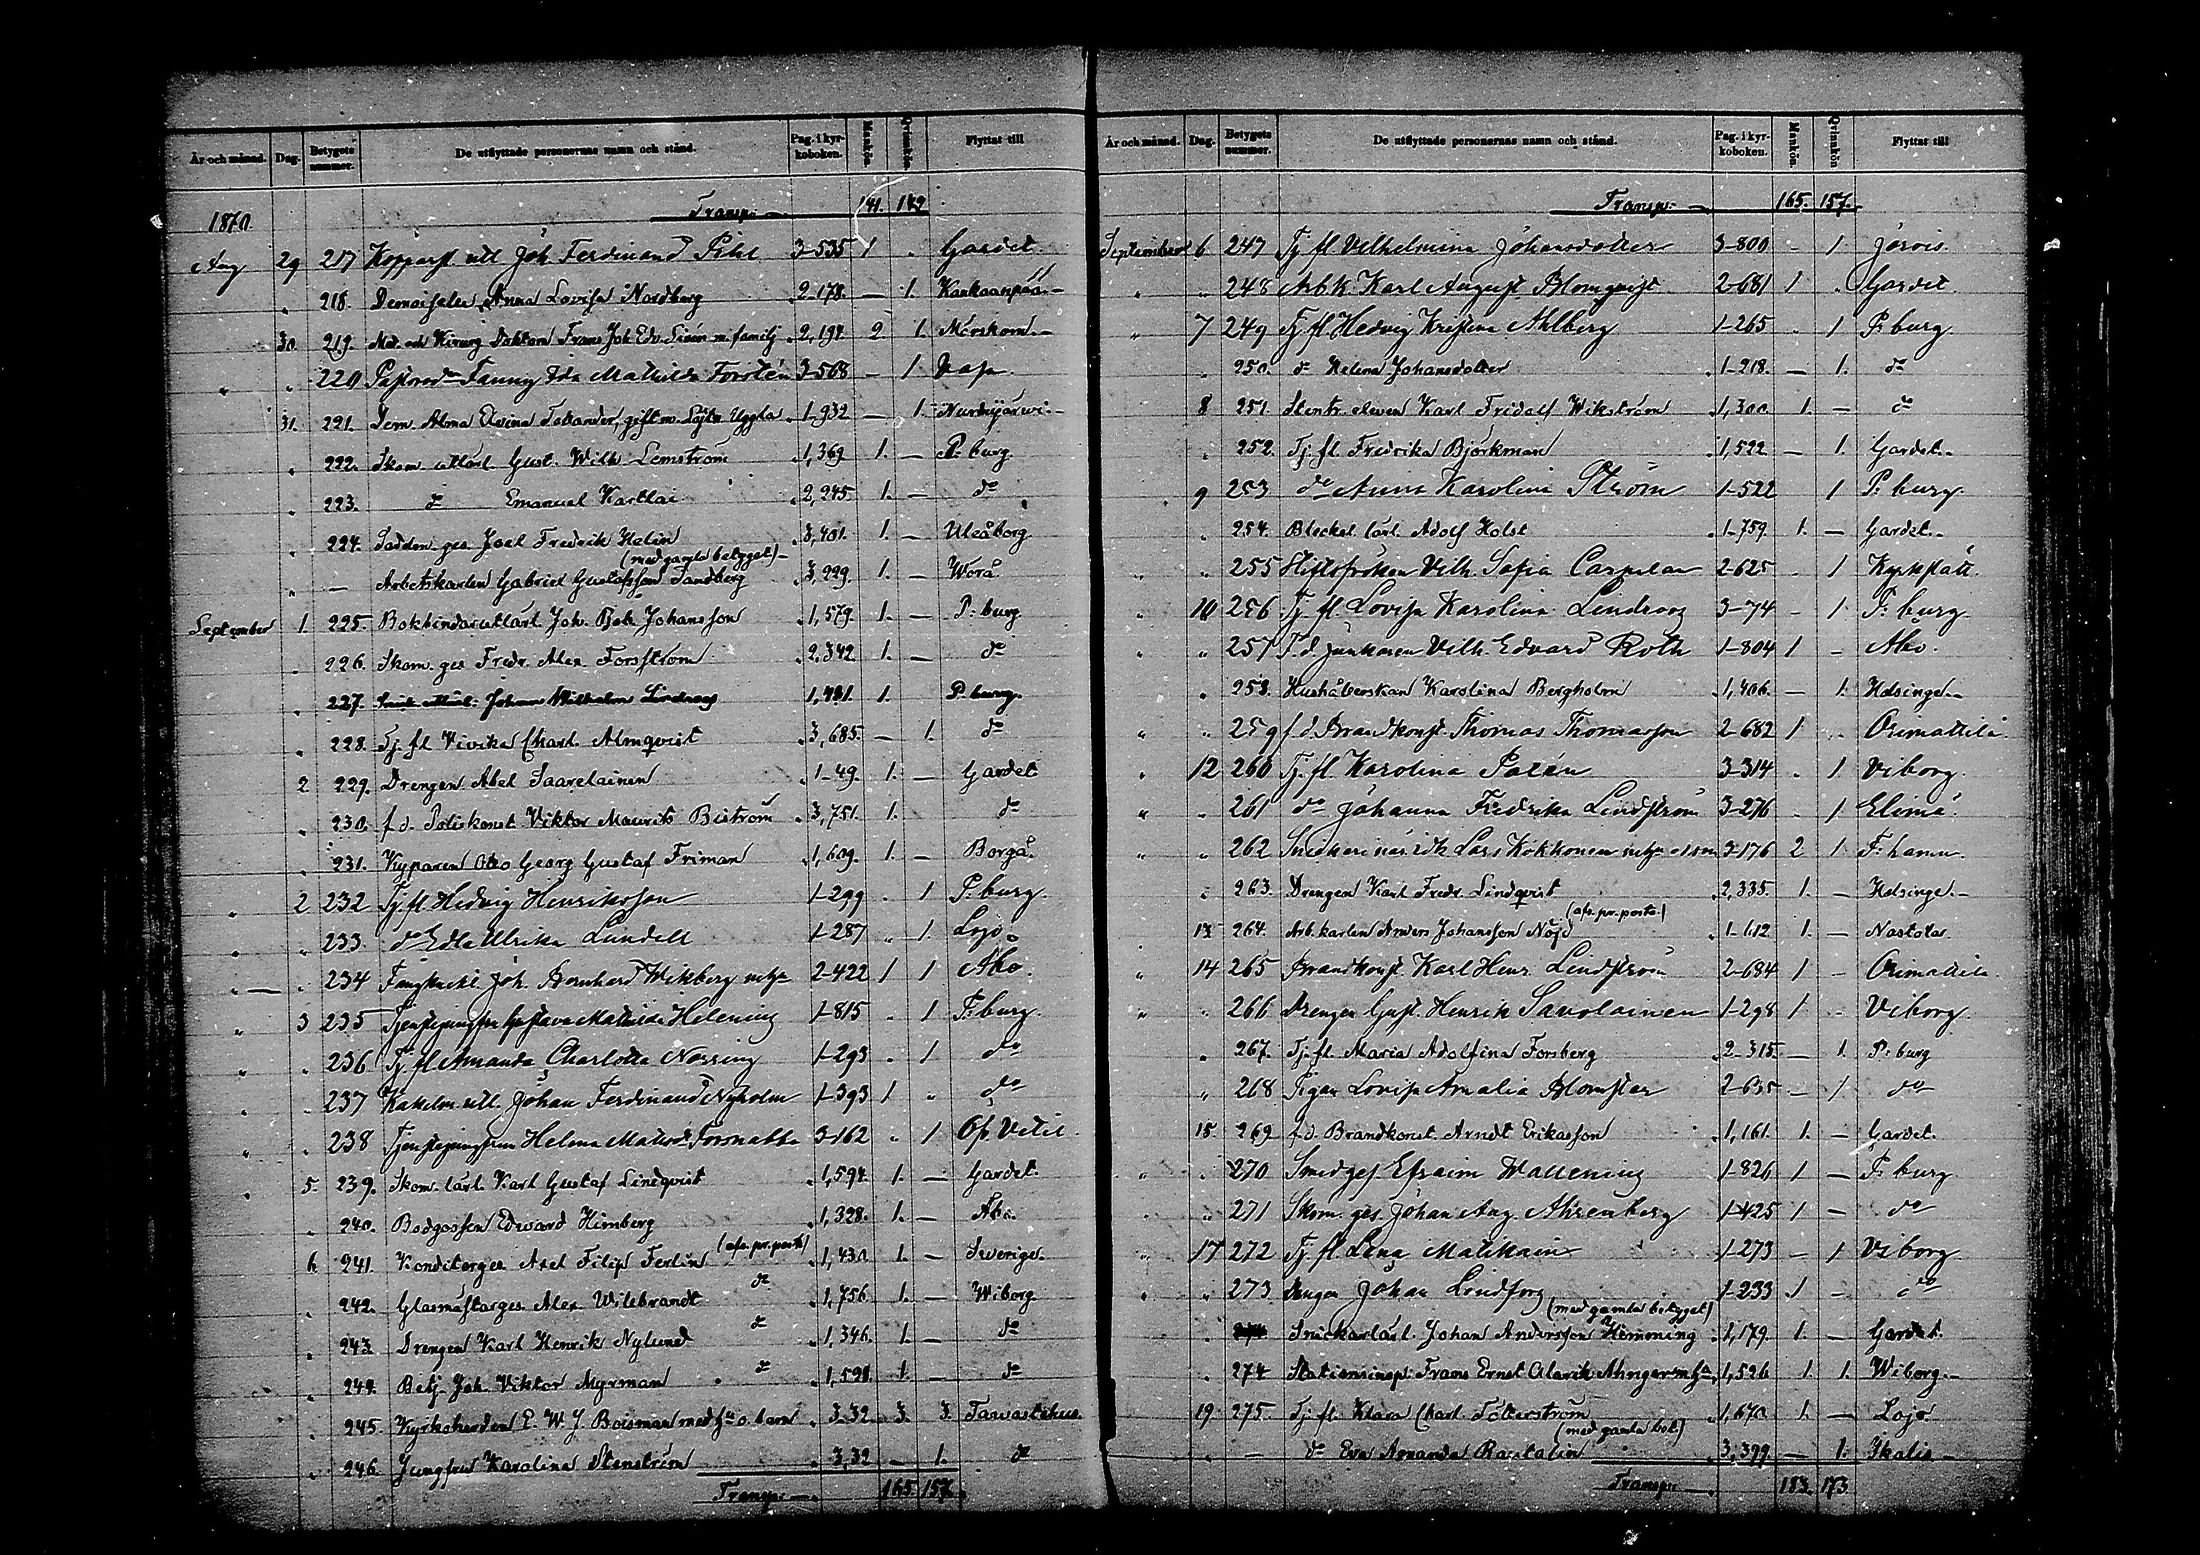 År och månad. Dag. Betygets nummer. De utflyttade personernas namn och stånd. Pag. i kyrkoboken. Mankön Qvinnkön Flyttat till
1870. Transp: 141. 142
Aug 29 217 Kopparsl. utl. Joh. Ferdinand Pihl 3-535 1 Gardet.
" 218. Demoiselen Anna Lovisa Nordberg 2-178. — 1. Kankaanpää.
30 219. Med. och Kirurg Doktorn Frans Joh. Edv. Sirén m. familj 2,194. 2. 1. Mörskom.
" " 220 Fanny Ida Mathilda Forstén 3-568 — 1 Vasa.
31. 221. Dem. Alma Elvina Tollander, gift m. Löjtn Uggla 1-932 — 1. Nurmijärwi.
" 222. Skom. utlärl. Gust. Wilh. Lemström 1,369. 1. — P:burg.
" 223. d:o Emanuel Karttai 2,245. 1. — d:o
" 224. Joel Fredrik Helin 3,401. 1. — Uleåborg
(med gamla betyget)
" — Arbetskarlen Gabriel Gustafsson Sandberg 3,229. 1. — Wörå
September 1. 225. Bokbindareutlärl. Joh. Johansson 1,579. 1. — P:burg
" 226. Skom. ges Fredr. Alex Forsström 2,342 1. — d:o
" 227. Johan Wilhelm Lindroos 1,481. 1. P:burg.
" 228. Tj. fl. Vivika Charl. Almqvist 3,685. — 1. d:o
2 229. Drengen Abel Saarelainen 1-49. 1. — Gardet
" 230. f. d. Poliskonst Viktor Maurits Biström 3,751. 1. d:o
" 231. Kyparen Otto Georg Gustaf Friman 1,609. 1. — Borgå.
" 2 232 Tj. fl Hedvig Henriksson 1-299 " 1 P:burg.
" " 233. d:o Edla Ulrika Lundell 1-287 " 1. Lojo
" " 234 Joh. Bernhard Wikberg m. h:u 2-422 1 1 Åbo.
" 3 235 Gustava Matilda Helenius 1-815 " 1 P:burg.
" " 236 Tj. fl Amanda Charlotta Norring 1-293 " 1 d:o
" " 237 Johan Ferdinand Nyholm 1-393 1 " d:o
" " 238 Helena Matilda 3-162 " 1 Öf. Vetil
5. 239. Skom. lärl. Karl Gustaf Lindqvist 1,594. 1. — Gardet.
" 240. Bodgossen Edward Himberg 1,328. 1. — Åbo.
6. 241. Konditorges Axel Filip Ferlin (afs. pr. post) 1,430 1. — Sverige.
" 242. Glasmästarges Alex Wilebrandt d:o 1,756 1. — Wiborg
" 243. Drengen Karl Henrik Nylund d:o 1,346. 1. — d:o
" 244. Betj. Joh. Viktor Myrman d:o 1,521. 1. — d:o
" 245. Kyrkoherden E. W. J. Boisman med h:u o. barn 3,32 3. 3. Tawastehus.
" 246. Jungfrun Karolina Stenström 3,32 — 1. d:o
Transp: 165. 157.
År och månad. Dag. Betygets nummer. De utflyttade personernas namn och stånd. Pag. i kyrkoboken. Mankön Qvinnkön Flyttat till
Transp: 165. 157.
September 6 247 Tj. fl Vilhelmina Johansdotter 3-800 — 1 Jorois.
" " 248 Arb. k. Karl August Blomqvist 2-681 1 " Gardet.
" 7 249 Tj. fl Hedvig Kristina Ahlberg 1-265 " 1 P:burg
" 250. d:o Helena Johansdotter 1-218. — 1. d:o
8 251. eleven Karl Fridolf Wikström 1,300. 1. — d:o
" 252. Tj. fl. Fredrika Björkman 1,522 — 1. Gardet.
" 9 253 d:o Anna Karolina Ström 1-522 1 P:burg.
" 254. Blecksl. lärl. Adolf Holst 1-759. 1. — Gardet.
" " 255 Stiftsfröken Vilh. Sofia Carpelan 2-625 " 1 Kyrkslätt.
" 10 256 Tj. fl. Lovisa Karolina Lindroos 3-74 — 1 P:burg.
" " 257 f. d. Junkaren Vilh. Edvard Roth 1-804 1 — Åbo.
" 258. Hushållerskan Karolina Bergholm 1,406. — 1. Helsinge.
" " 259 f. d. Brandkonst. Thomas Thomasson 2-682 1 " Orimattila.
" 12 260 Tj. fl. Karolina Palén 3-314 " 1 Viborg.
" " 261 d:o Johanna Fredrika Lindström 3-276 " 1 Elimä.
" " 262 Lars Kokkonen 3-176 2 1 F:hamn.
" 263. Drengen Karl Fredr. Lindqvist 2,335. 1. — Helsinge.
(afs. pr. posto)
13 264. Arb. karlen Anders Johansson Nöjd 1-112 1. — Nastola.
" 14 265 Brandkonst. Karl Henr. Lindström 2-684 1 — Orimattila.
" " 266 Drengen Gust. Henrik Savolainen 1-298 1 — Viborg.
" 267. Tj. fl. Maria Adolfina Forsberg 2-315 — 1. P:burg
" 268 Pigan Lovisa Amalia Blomster 2-635 — 1 d:o
15. 269 f. d. Brandkonst. Arndt Eriksson 1,161. 1. — Gardet.
" " 270 Smedges. Efraim Wallenius 1-826 1 — P:burg
" " 271 Skom. ges. Johan Aug. Ahrenberg 1-425 1 — d:o
" 17 272 Tj. fl. Lena Matikain 1-273 — 1 Viborg
" " 273 Drengen Johan Lindfors 1-233 1 — d:o
(med gamla betyget)
" Snickarlärl. Johan Andersson Hemming 1,179. 1. — Gardet.
" 274 Stationsinsp. Frans Ernst Alarik Ahnger m. h:u 1,526 1. 1. Wiborg.
19. 275. Tj. fl. Klara Charl. Töterström 1,670. 1. — Lojo
(med gamla bet.)
" — d:o Eva Amanda Rastalin 3,399. — 1. Ikalis
Transp: 183. 173.